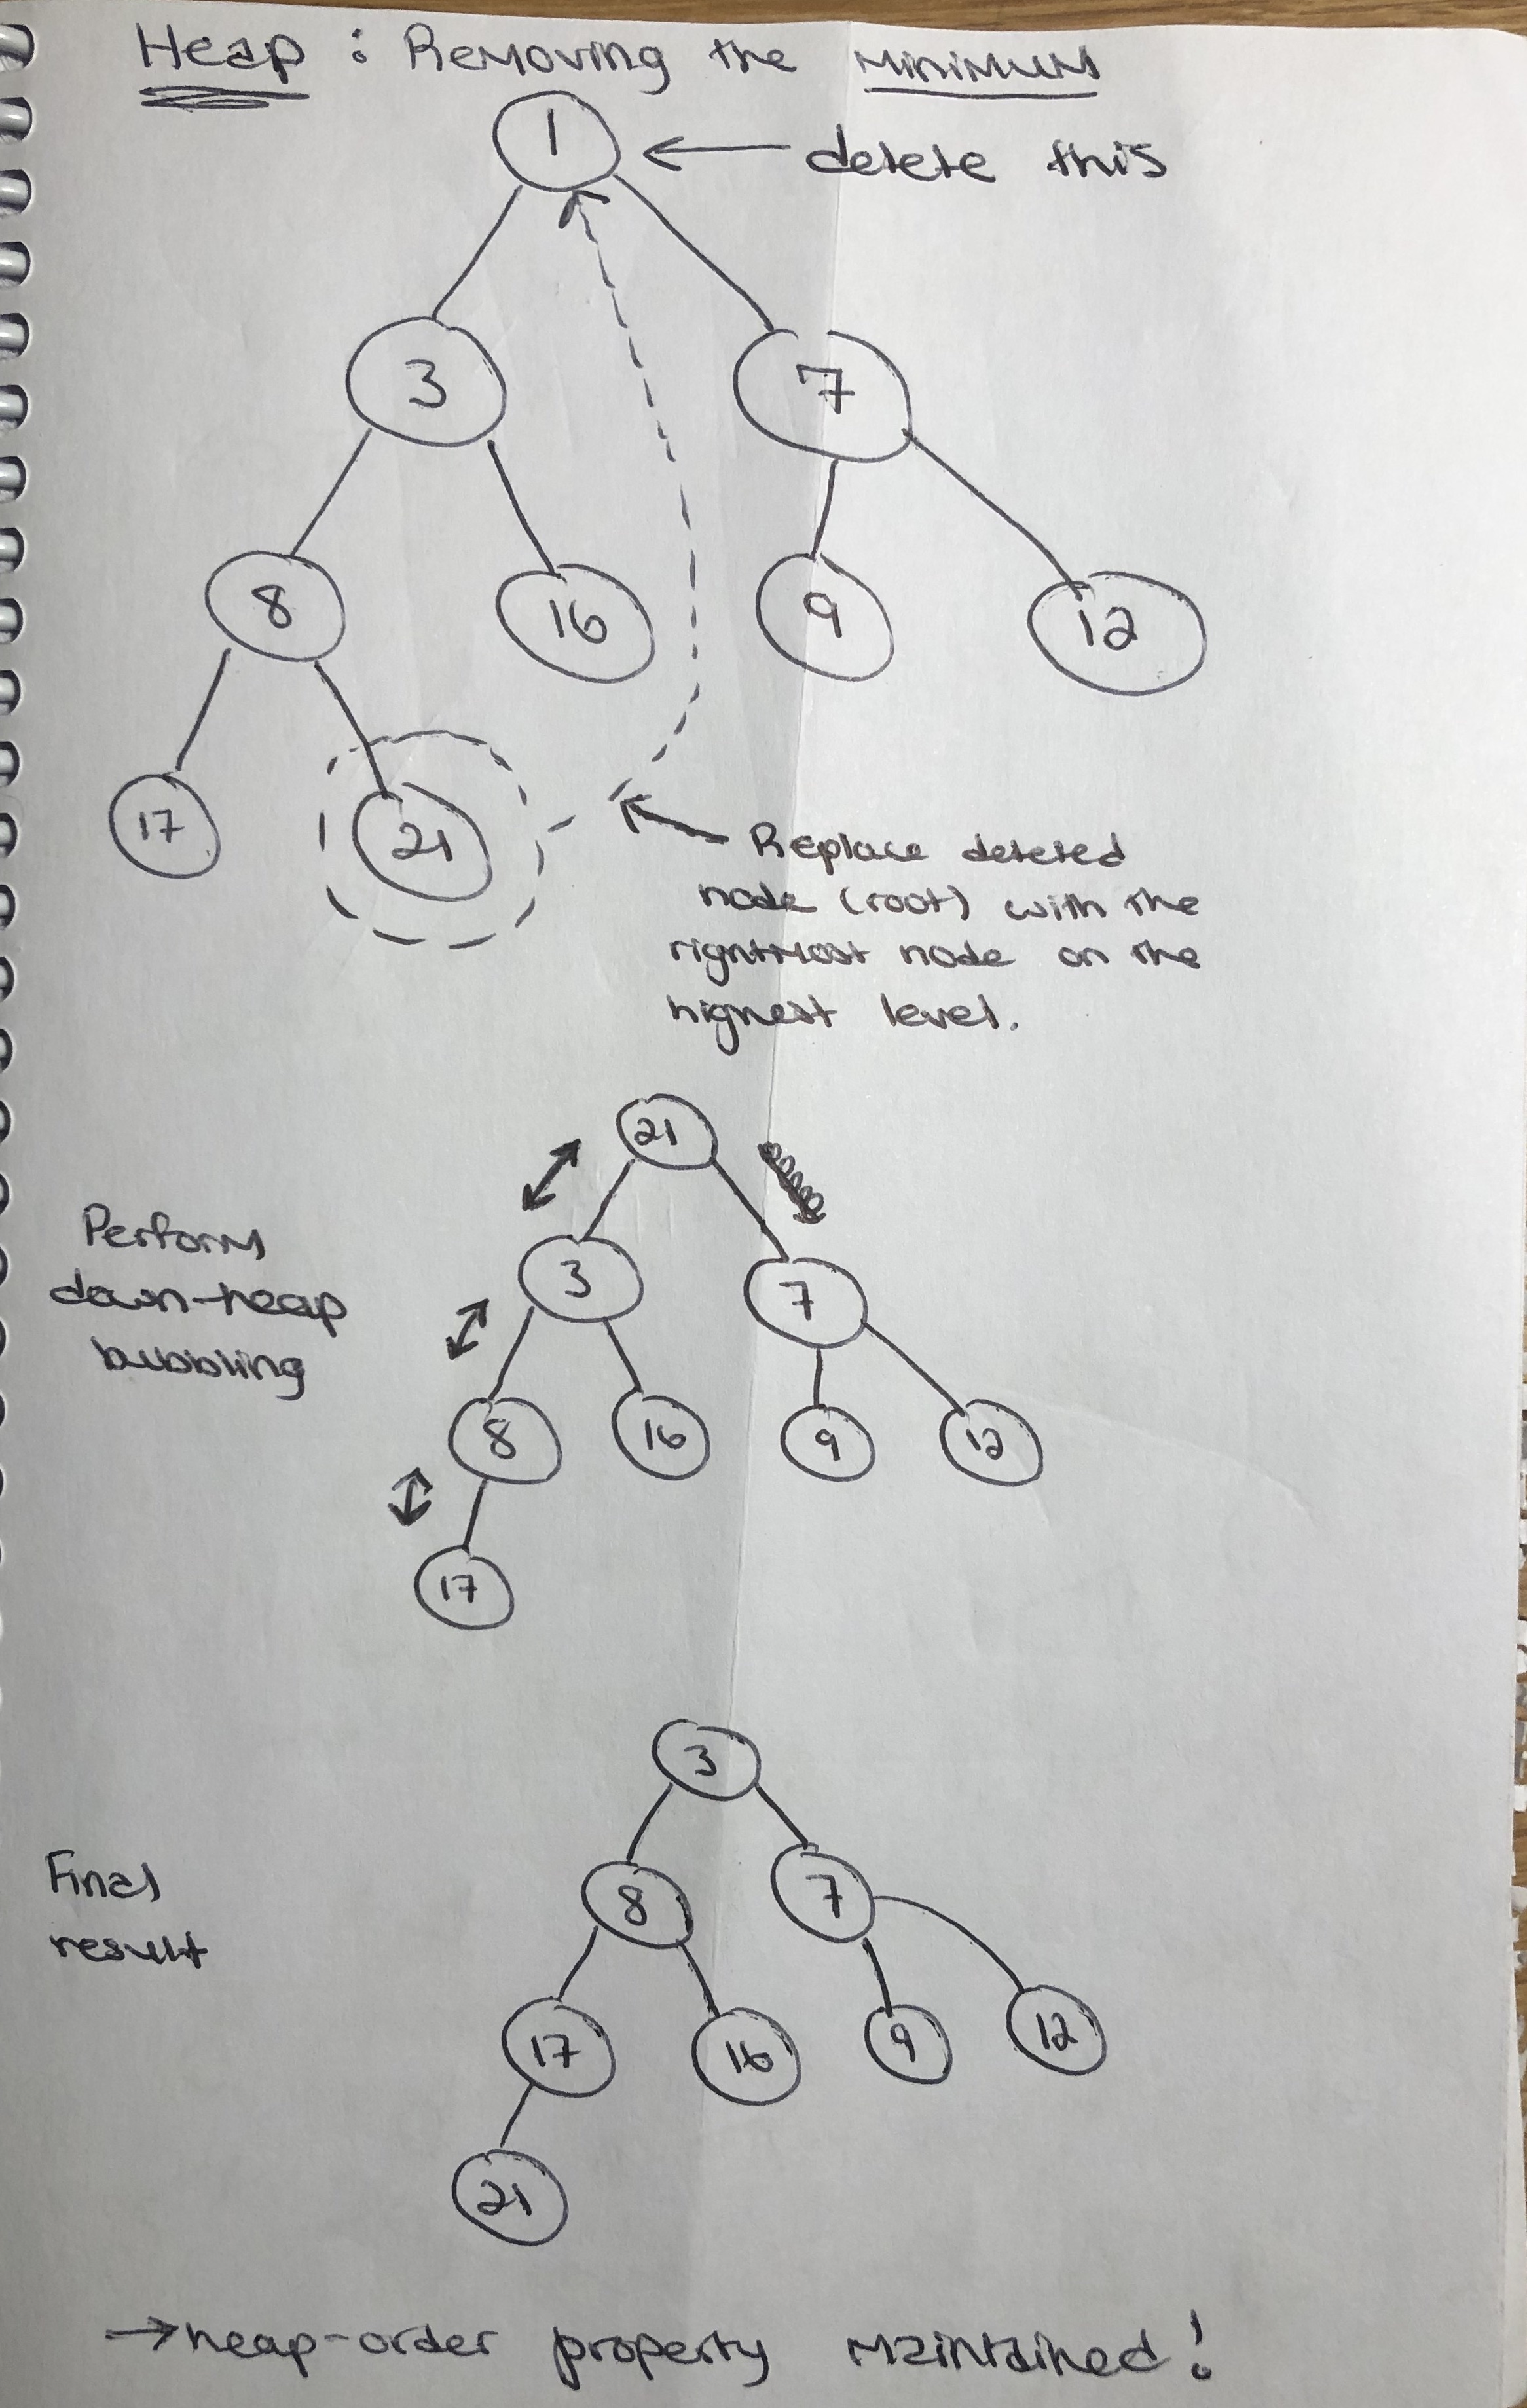 Heap : Removing the minimum
1
← delete this
3
7
8
16
9
12
17
21
Replace deleted
node (root) with the
rightmost node on the
highest level.
21
Perform
down-heap
bubbling
3
7
8
16
9
12
17
3
Final
result
8
7
17
16
9
12
21
→ heap-order property maintained!